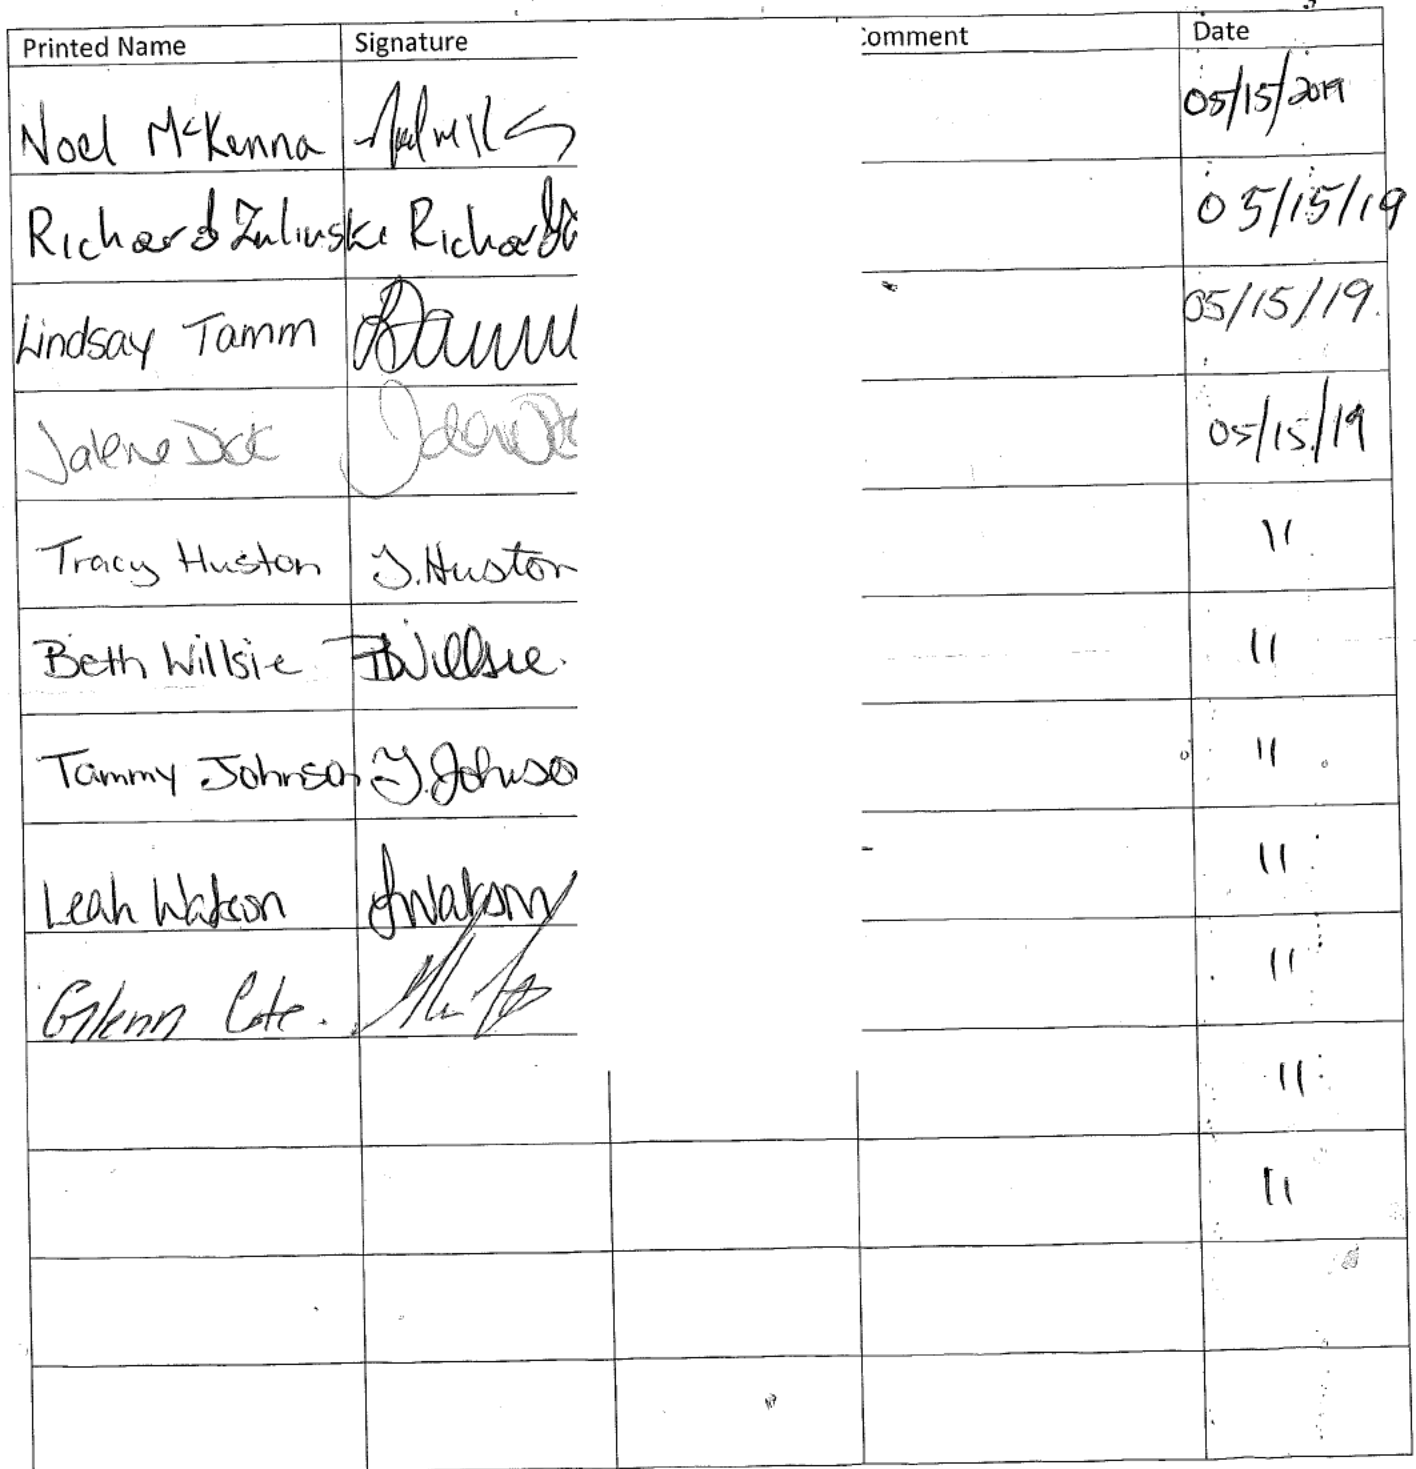 Printed Name Signature Comment Date
Noel McKenna 05/15/2019
Richard Zulinski Richard Z 05/15/19
Lindsay Tamm 05/15/19.
Jalene Dick Jalene Dic 05/15/19
Tracy Huston T.Huston "
Beth Willsie BWillsie. "
Tammy Johnson T.Johnso "
Leah Watson LWatson "
Glenn Cote. "
"
"